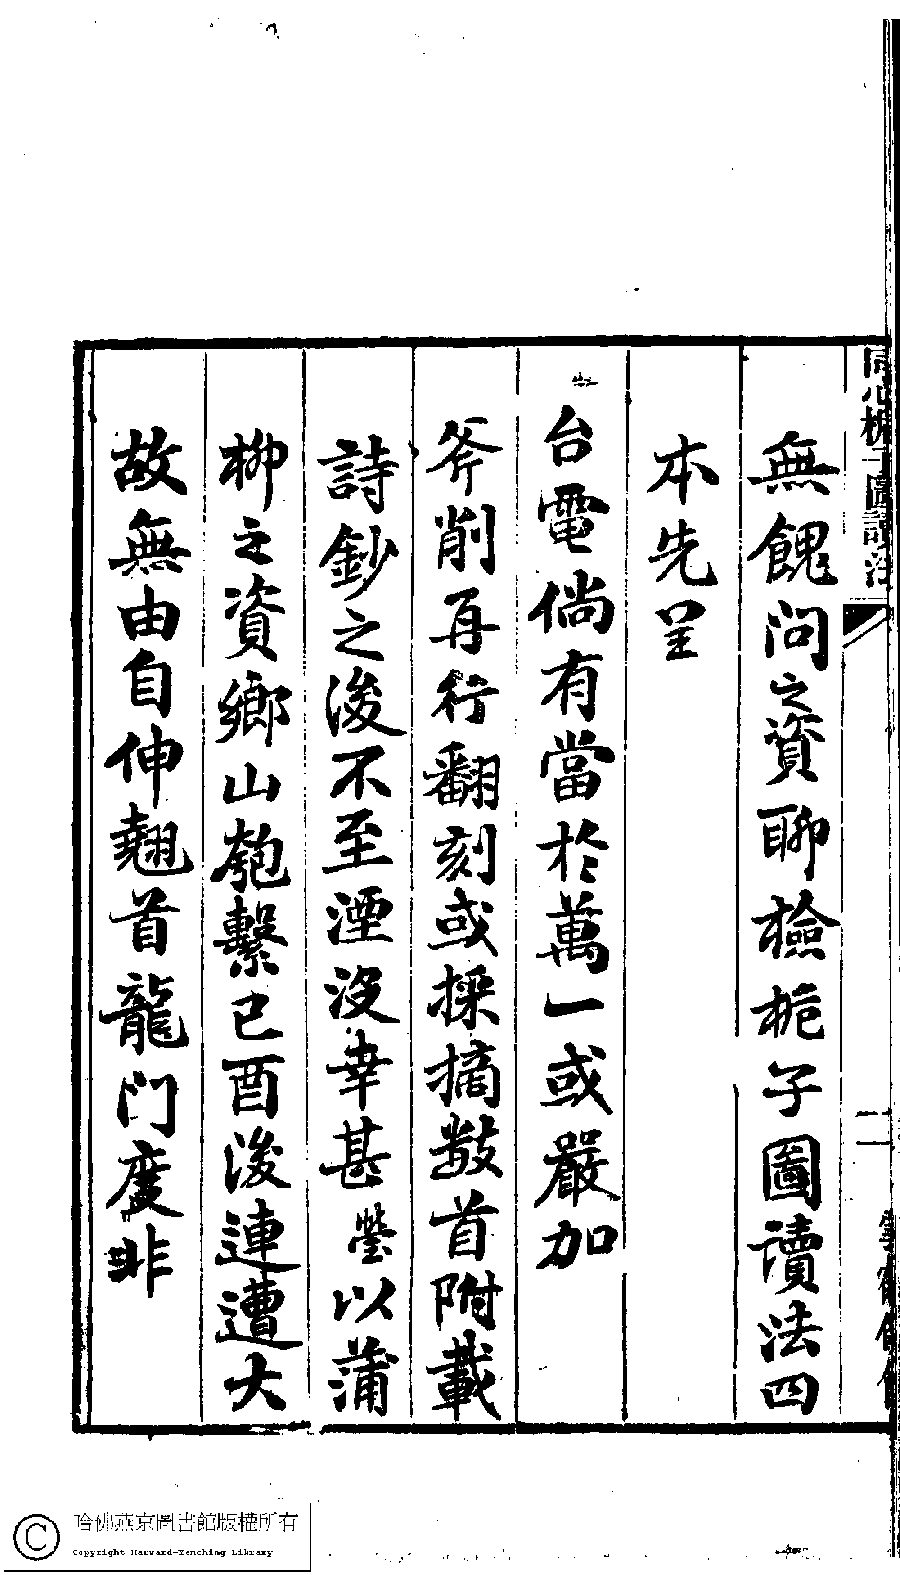 同心梔子圖讀法
二
無餽問之資聊檢梔子圖讀法四
本先呈
台電倘有當於萬一或嚴加
斧削再行翻刻或採摘數首附載
詩鈔之後不至湮沒幸甚瑩以蒲
柳之資鄉山匏繫已酉後連遭大
故無由自伸翹首龍門度非
哈佛燕京圖書館版權所有
Copyright Harvard-Yenching Library